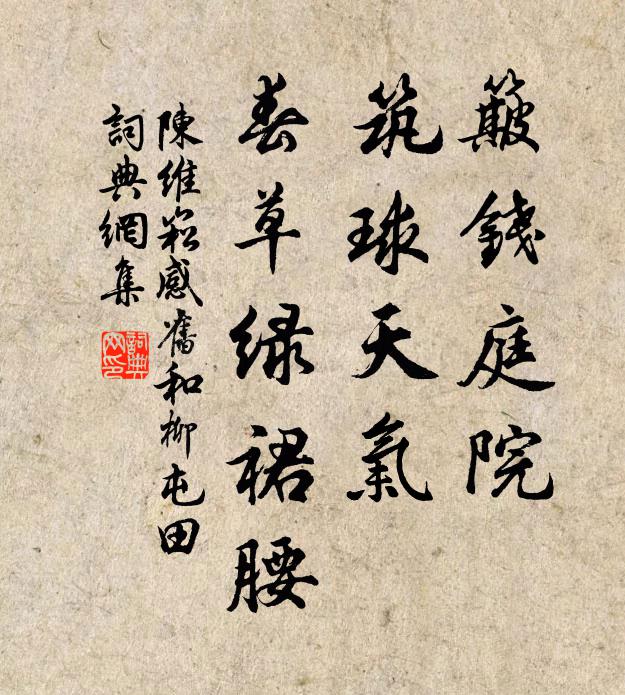 簸錢庭院
筑球天氣
春草绿裙腰
陳維崧感舊和柳屯田
詞典網集
詞典
网印